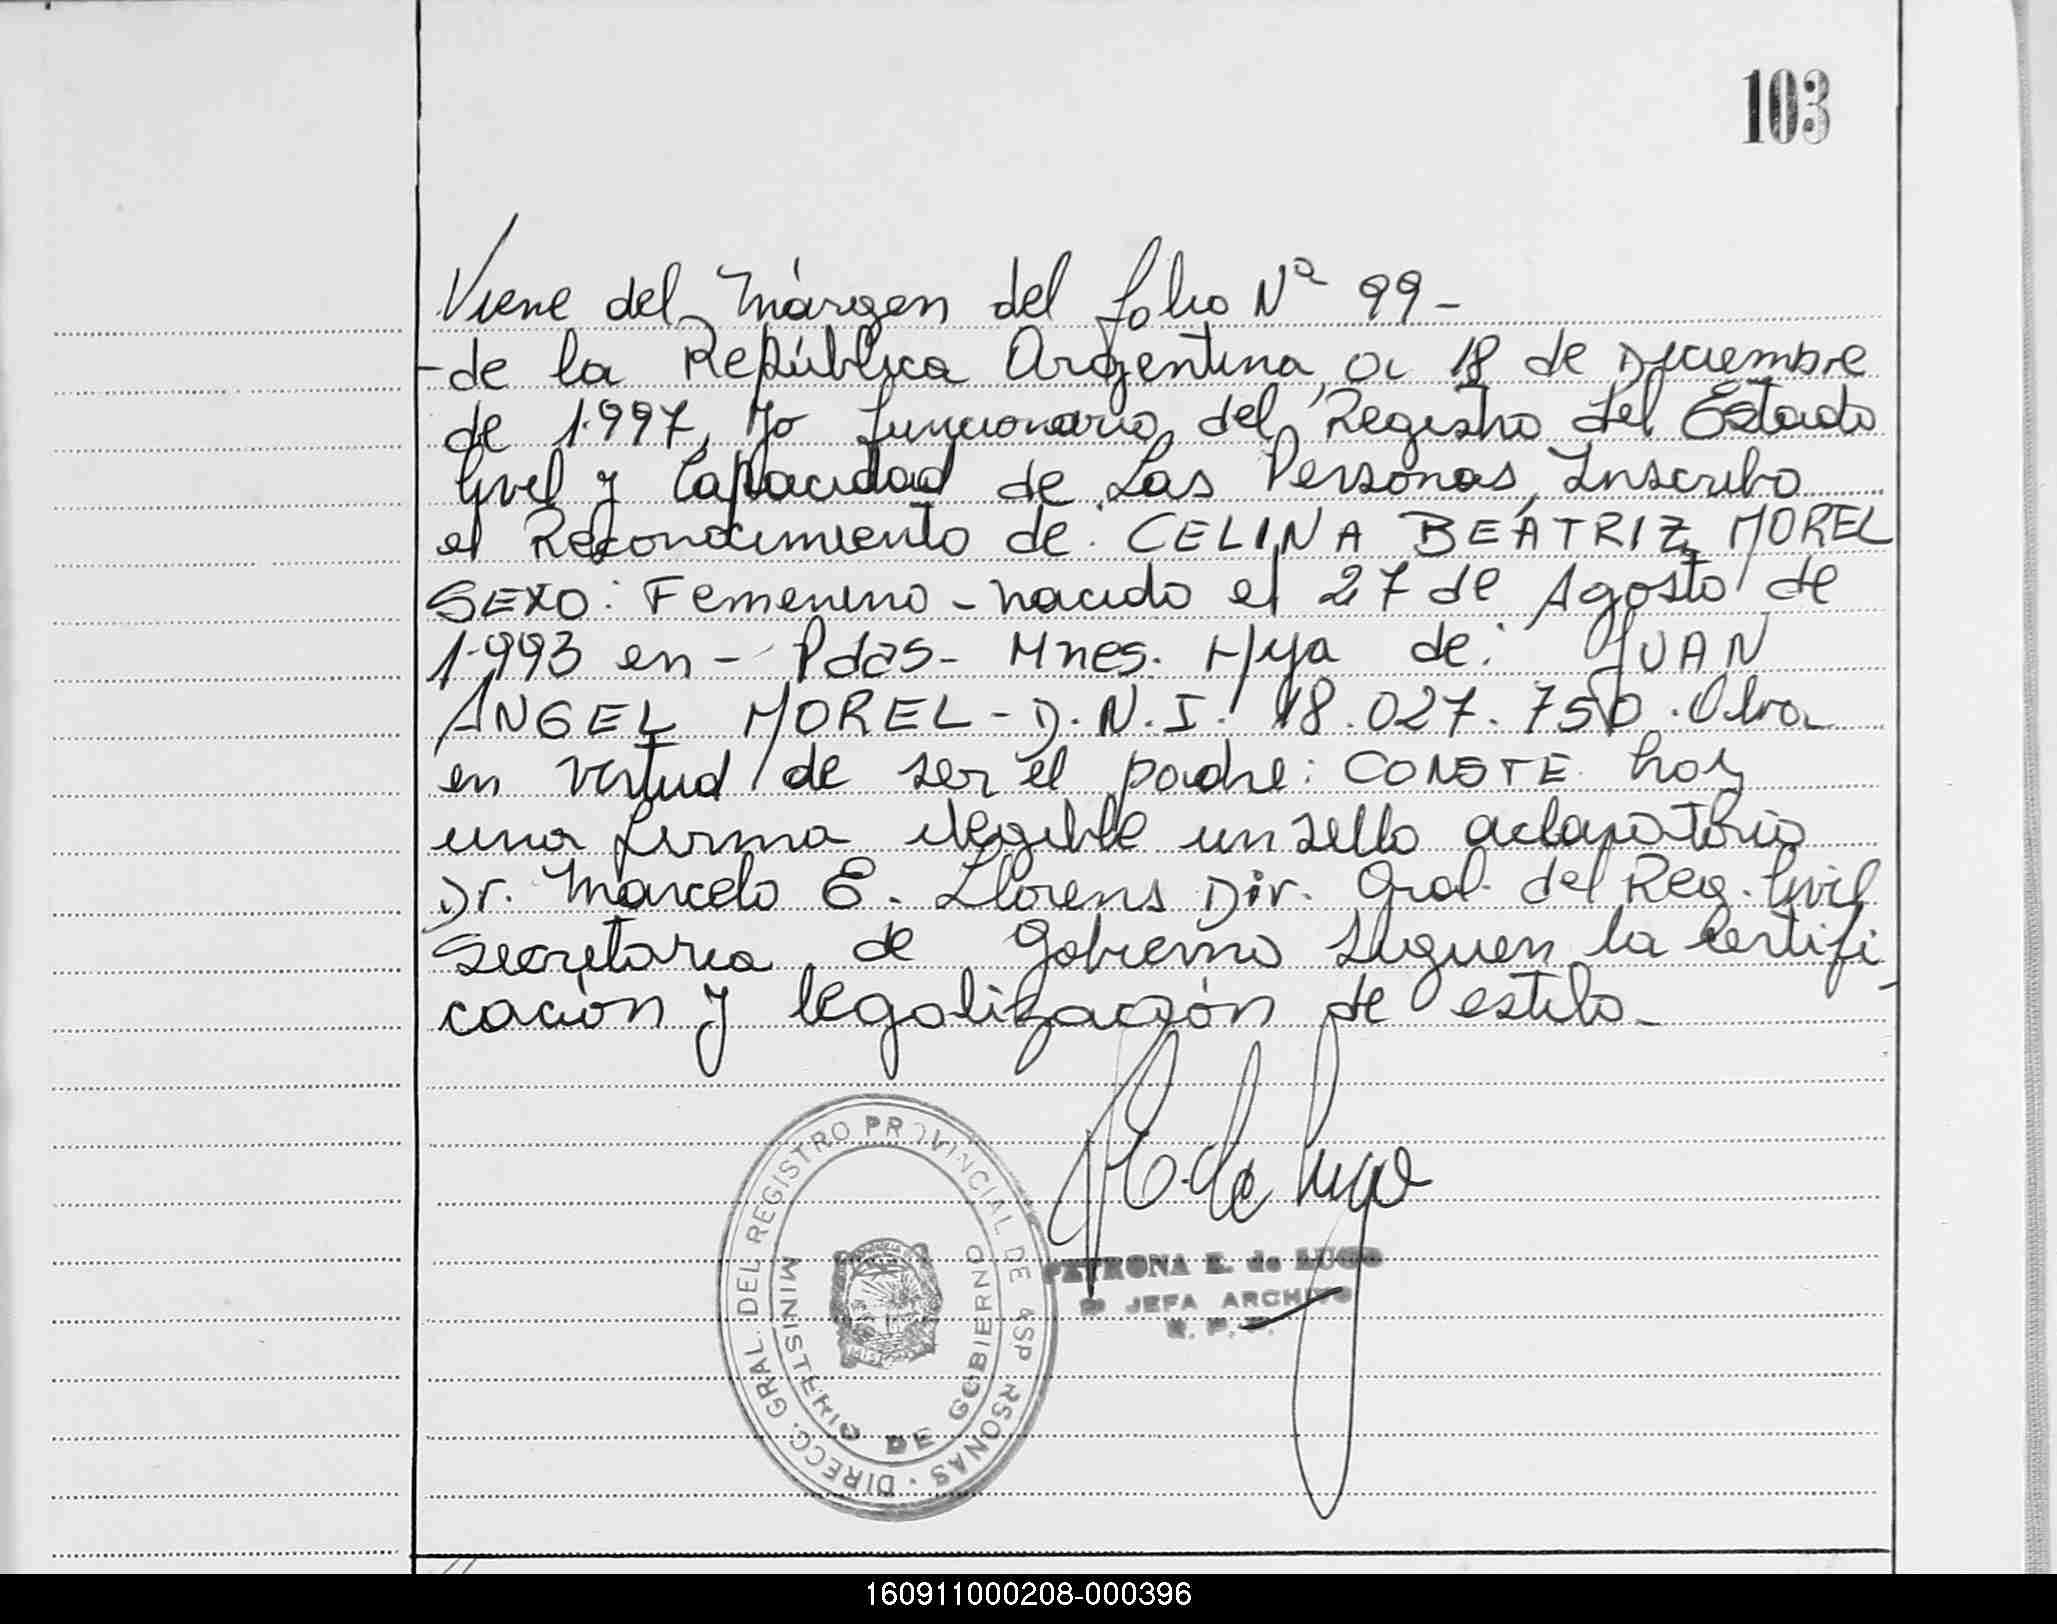 103
Viene del Márgen del folio Nº 99-
-de la República Argentina, a 18 de Diciembre
de 1.997, Yo funcionario del Registro del Estado
Civil y Capacidad de Las Personas, Inscribo
el Reconocimiento de: CELINA BEATRIZ MOREL
SEXO: Femenino - nacido el 27 de Agosto de
1.993 en - Pdas - Mnes. Hija de: JUAN
ANGEL MOREL - D.N.I. 18.027.750. Obra
en virtud de ser el padre: CONSTE hay
una firma ilegible un sello aclaratorio
Dr. Marcelo E. Llorens Dir. Gral. del Reg. Civil
Secretaria de Gobierno siguen la certifi
cación y legalización de estilo-
DIRECC. GRAL. DEL REGISTRO PROVINCIAL DE PERSONAS
MINISTERIO DE GOBIERNO
PETRONA E. de LUGO
JEFA ARCHIVO
R. P. P.
160911000208-000396